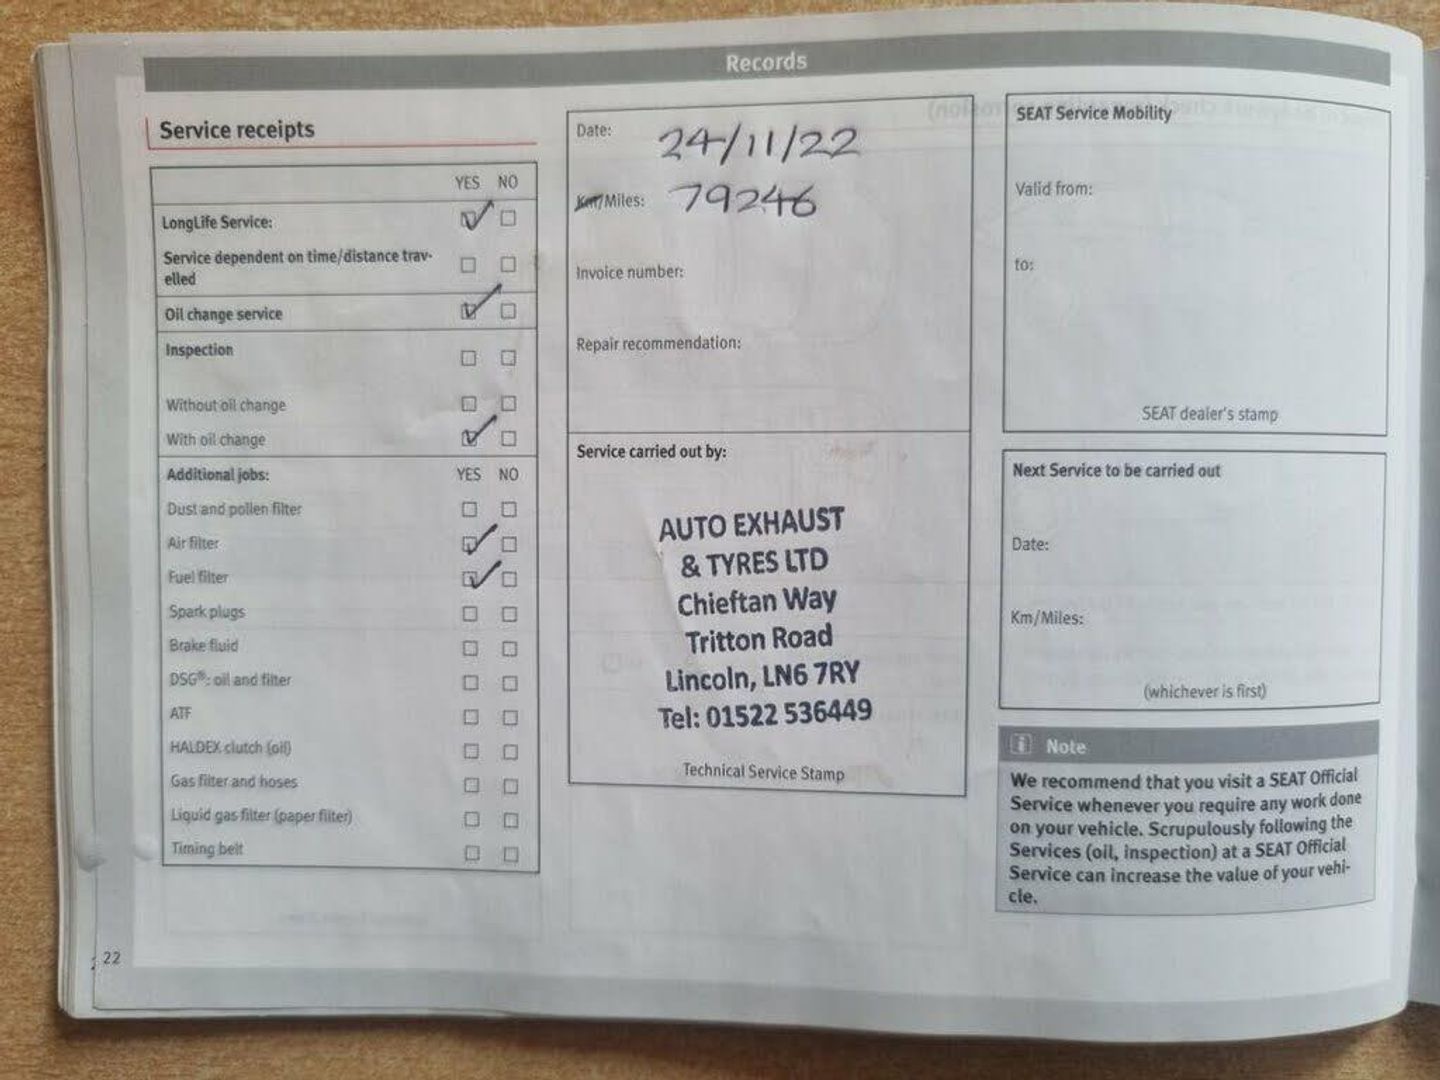 Records
Service receipts
YES NO
LongLife Service:
Service dependent on time/distance trav-
elled
Oil change service
Inspection
Without oil change
With oil change
Additional jobs: YES NO
Dust and pollen filter
Air filter
Fuel filter
Spark plugs
Brake fluid
DSG®: oil and filter
ATF
HALDEX clutch (oil)
Gas filter and hoses
Liquid gas filter (paper filter)
Timing belt
22
Date: 24/11/22
Km/Miles: 79246
Invoice number:
Repair recommendation:
Service carried out by:
AUTO EXHAUST
& TYRES LTD
Chieftan Way
Tritton Road
Lincoln, LN6 7RY
Tel: 01522 536449
Technical Service Stamp
SEAT Service Mobility
Valid from:
to:
SEAT dealer's stamp
Next Service to be carried out
Date:
Km/Miles:
(whichever is first)
i Note
We recommend that you visit a SEAT Official
Service whenever you require any work done
on your vehicle. Scrupulously following the
Services (oil, inspection) at a SEAT Official
Service can increase the value of your vehi-
cle.